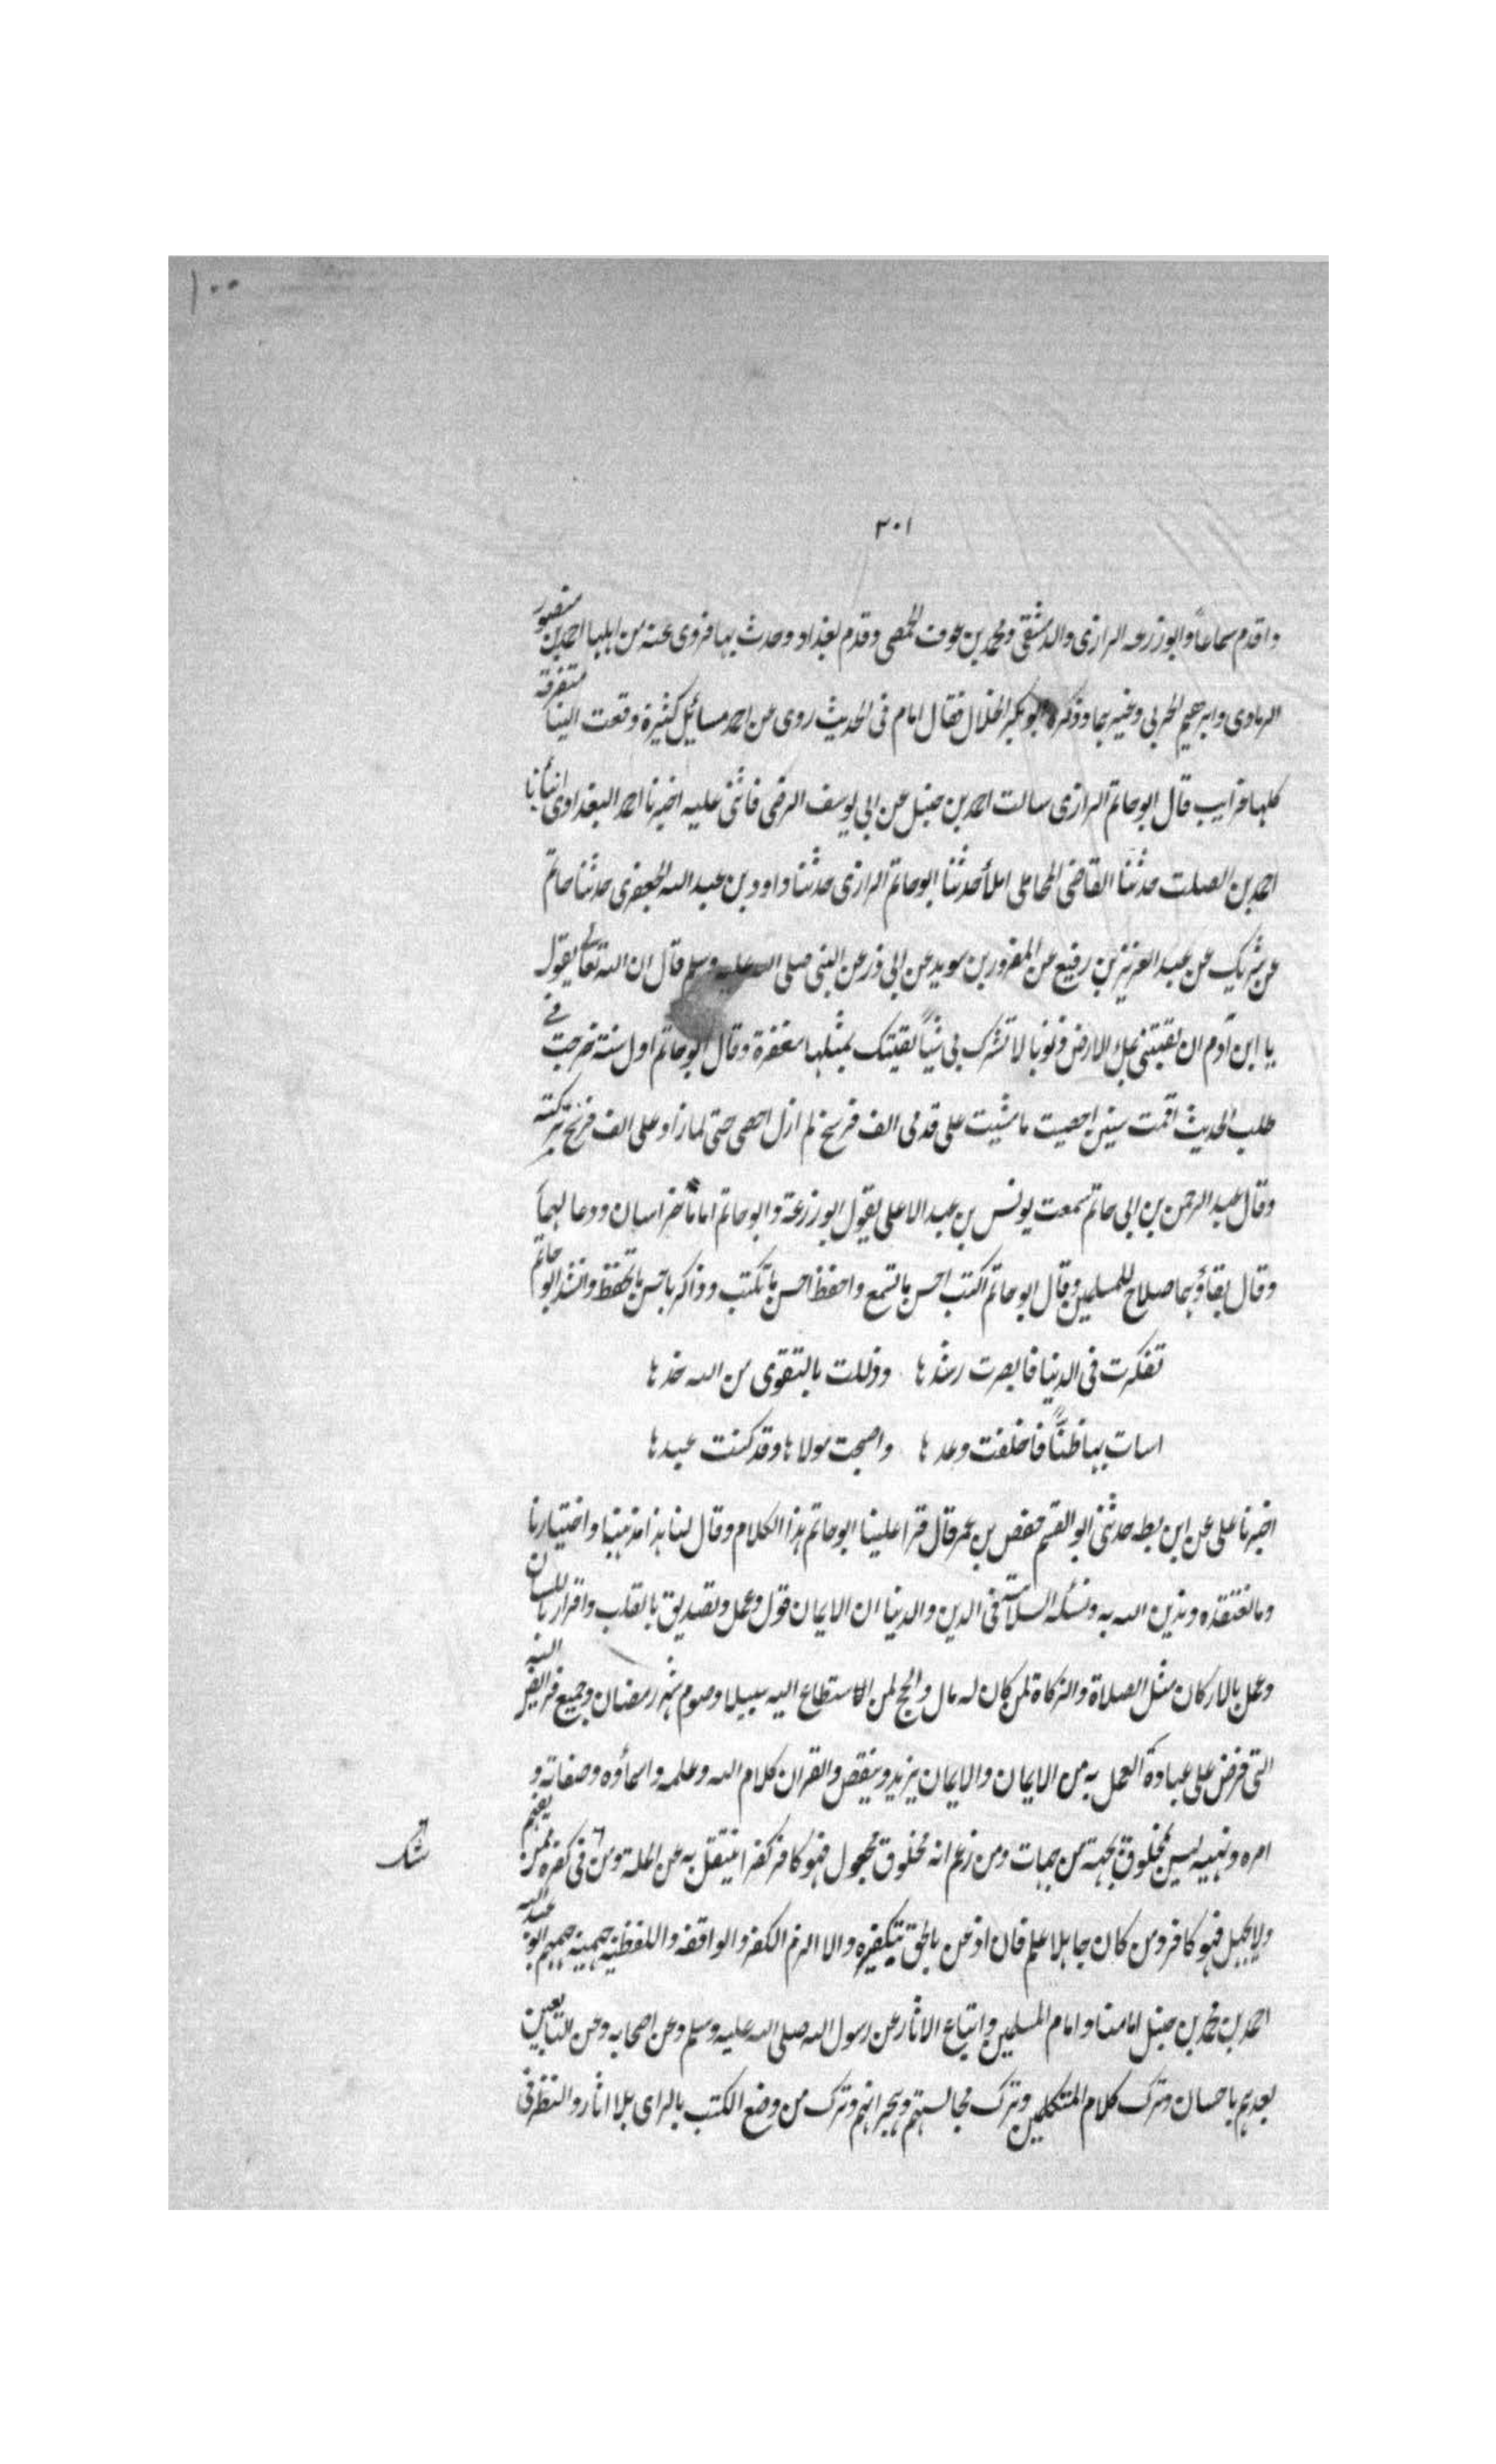 ١٠٠
٣٠١
واقدم سماعاً وابو زرعه الرازى والدمشقى ومحمد بن عوف الحمصى وقدم بغداد وحدث بها فروى عنه من اهلها احمد بن منصور
الرمادى وابرهيم الحربى وغيرهما وذكره ابو بكر الخلال فقال امام فى الحديث روى عن احمد مسائل كثيرة وقعت الينا متفرقة
كلها غرايب قال ابو حاتم الرازى سالت احمد بن حنبل عن ابى يوسف الرقى فاثنى عليه اخبرنا احمد البغدادى انبأنا
احمد بن الصلت حدثنا القاضى المحاملى املأ حدثنا ابو حاتم الرازى حدثنا داود بن عبد الله الجعفرى حدثنا حاتم
عن شريك عن عبد العزيز بن رفيع عن المغرور بن سويد عن ابى ذر عن النبى صلى الله عليه وسلم قال ان الله تعالى يقول
يا ابن آدم ان لقيتنى بملء الارض ذنوبا لا تشرك بى شيأً لقيتك بمثلها مغفرة وقال ابو حاتم اول سنة خرجت فى
طلب الحديث اقمت سنين احصيت ما مشيت على قدمى الف فرسخ لم ازل احصى حتى لما زاد على الف فرسخ تركته
وقال عبد الرحمن بن ابى حاتم سمعت يونس بن عبد الاعلى يقول ابو زرعة وابو حاتم اماما خراسان ودعا لهما
وقال بقاؤهما صلاح للمسلمين وقال ابو حاتم اكتب احسن ما تسمع واحفظ احسن ما تكتب وذاكر باحسن ما تحفظ وانشد ابو حاتم
تفكرت فى الدنيا فابصرت رشدها وذللت بالتقوى من الله خدها
اسات بها ظنًّا فاخلفت وعدها واصبحت مولاها وقد كنت عبدها
اخبرنا على عن ابن بطه حدثنى ابو القسم حفص بن عمر قال قرا علينا ابو حاتم هذا الكلام وقال لنا هذا مذهبنا واختيارنا
وما نعتقده وندين الله به ونسئله السلامة فى الدين والدنيا ان الايمان قول وعمل وتصديق بالقلب واقرار باللسان
وعمل بالاركان مثل الصلاة والزكاة لمن كان له مال والحج لمن استطاع اليه سبيلا وصوم شهر رمضان وجميع فرايض الله
التى فرض على عباده العمل به من الايمان والايمان يزيد وينقص والقران كلام الله وعلمه واسماؤه وصفاته و
امره ونهيه ليس بمخلوق بجهة من جهات ومن زعم انه مخلوق مجهول فهو كافر كفرا ينتقل به عن الملة ومن ٦ فى كفره ممن يفهم
شك
ولا يجهل فهو كافر ومن كان جاهلا علم فان اذعن بالحق بتكفيره والا الزم الكفر والواقفه واللفظيه جهمية جهمهم ابو عبد الله
احمد بن محمد بن حنبل امامنا وامام المسلمين واتباع الاثار عن رسول الله صلى الله عليه وسلم وعن اصحابه وعن التابعين
بعدهم باحسان وترك كلام المتكلمين وترك مجالستهم وهجرانهم وترك من وضع الكتب بالراى بلا اثار والنظر فى